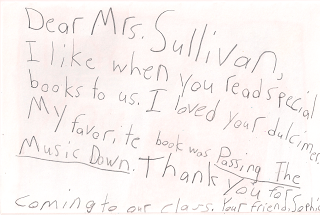 Dear Mrs. Sullivan,
I like when you read special
books to us. I loved your dulcimer,
My favorite book was Passing The
Music Down. Thank you for
coming to our class. Your friend, Sophia